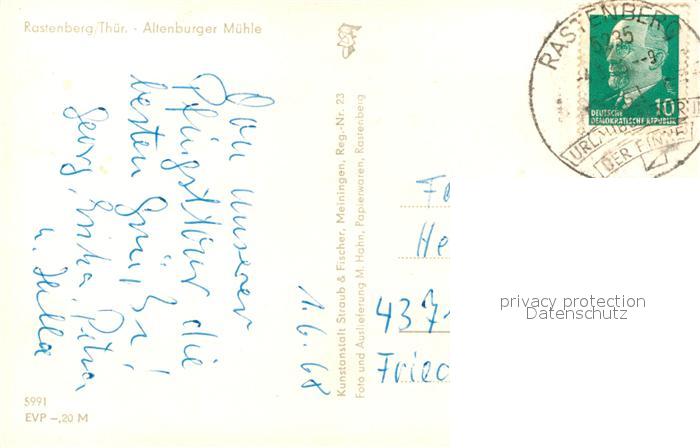 Rastenberg/Thür. - Altenburger Mühle
Von unserer
Pfingsttour die
besten Grüße!
Georg, Erika, Petra
u. Hilla
1.6.68
5991
EVP -,20 M
Kunstanstalt Straub & Fischer, Meiningen, Reg.-Nr. 23
Foto und Auslieferung M. Hahn, Papierwaren, Rastenberg
RASTENBERG
5235
-9
URLAUB
DER FINNE
10
DEUTSCHE
DEMOKRATISCHE REPUBLIK
Fa
He
4371
Fried
privacy protection
Datenschutz